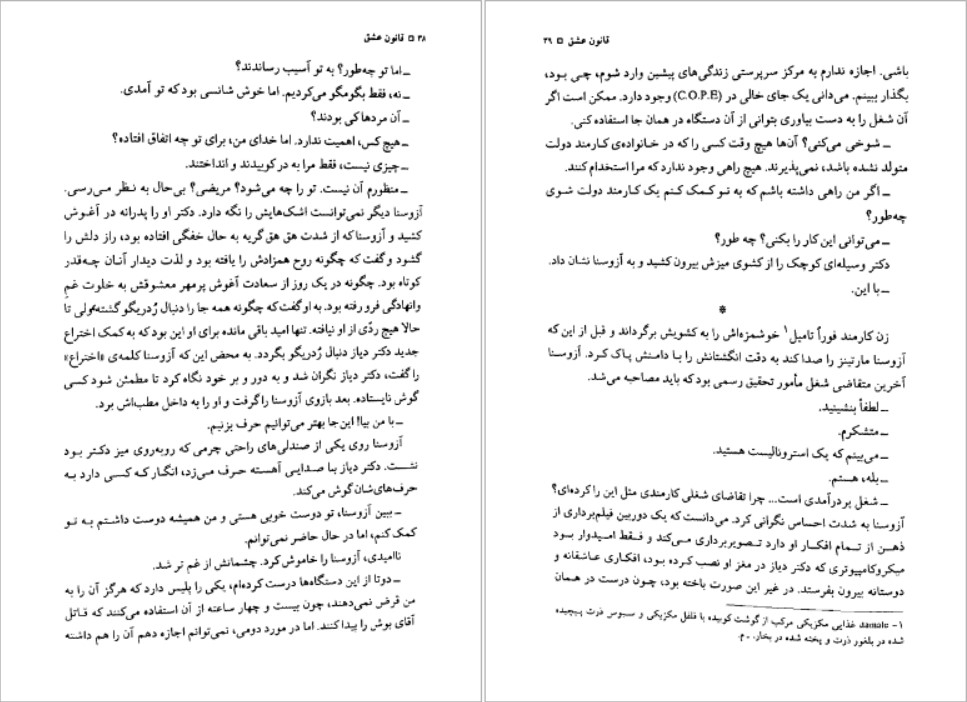 ۳۸ □ قانون عشق
ـ اما تو چه‌طور؟ به تو آسیب رساندند؟
ـ نه، فقط بگومگو می‌کردیم. اما خوش شانسی بود که تو آمدی.
ـ آن مردها کی بودند؟
ـ هیچ کس، اهمیت ندارد. اما خدای من، برای تو چه اتفاق افتاده؟
ـ چیزی نیست، فقط مرا به در کوبیدند و انداختند.
ـ منظورم آن نیست. تو را چه می‌شود؟ مریضی؟ بی‌حال به نظر می‌رسی.
آزوسنا دیگر نمی‌توانست اشک‌هایش را نگه دارد. دکتر او را پدرانه در آغوش
کشید و آزوسنا که از شدت هق هق گریه به حال خفگی افتاده بود، راز دلش را
گشود و گفت که چگونه روح همزادش را یافته بود و لذت دیدار آنان چه‌قدر
کوتاه بود. چگونه در یک روز از سعادت آغوش پرمهر معشوقش به خلوت غم
وانهادگی فرو رفته بود. به او گفت که چگونه همه جا را دنبال رُدریگو گشته ولی تا
حالا هیچ ردّی از او نیافته. تنها امید باقی مانده برای او این بود که به کمک اختراع
جدید دکتر دیاز دنبال رُدریگو بگردد. به محض این که آزوسنا کلمه‌ی «اختراع»
را گفت، دکتر دیاز نگران شد و به دور و بر خود نگاه کرد تا مطمئن شود کسی
گوش نایستاده. بعد بازوی آزوسنا را گرفت و او را به داخل مطب‌اش برد.
ـ با من بیا! این‌جا بهتر می‌توانیم حرف بزنیم.
آزوسنا روی یکی از صندلی‌های راحتی چرمی که روبه‌روی میز دکتر بود
نشست. دکتر دیاز با صدایی آهسته حرف می‌زد، انگار که کسی دارد به
حرف‌های‌شان گوش می‌کند.
ـ ببین آزوسنا، تو دوست خوبی هستی و من همیشه دوست داشتم به تو
کمک کنم، اما در حال حاضر نمی‌توانم.
ناامیدی، آزوسنا را خاموش کرد. چشمانش از غم تر شد.
ـ دوتا از این دستگاه‌ها درست کرده‌ام، یکی را پلیس دارد که هرگز آن را به
من قرض نمی‌دهند، چون بیست و چهار ساعته از آن استفاده می‌کنند که قاتل
آقای بوش را پیدا کنند. اما در مورد دومی، نمی‌توانم اجازه دهم آن را هم داشته
قانون عشق □ ۳۹
باشی. اجازه ندارم به مرکز سرپرستی زندگی‌های پیشین وارد شوم، چی بود،
بگذار ببینم. می‌دانی یک جای خالی در (C.O.P.E) وجود دارد. ممکن است اگر
آن شغل را به دست بیاوری بتوانی از آن دستگاه در همان جا استفاده کنی.
ـ شوخی می‌کنی؟ آن‌ها هیچ وقت کسی را که در خانواده‌ی کارمند دولت
متولد نشده باشد، نمی‌پذیرند. هیچ راهی وجود ندارد که مرا استخدام کنند.
ـ اگر من راهی داشته باشم که به تو کمک کنم یک کارمند دولت شوی
چه‌طور؟
ـ می‌توانی این کار را بکنی؟ چه طور؟
دکتر وسیله‌ای کوچک را از کشوی میزش بیرون کشید و به آزوسنا نشان داد.
ـ با این.
*
زن کارمند فوراً تامیل۱ خوشمزه‌اش را به کشویش برگرداند و قبل از این که
آزوسنا مارتینز را صدا کند به دقت انگشتانش را با دامنش پاک کرد. آزوسنا
آخرین متقاضی شغل مأمور تحقیق رسمی بود که باید مصاحبه می‌شد.
ـ لطفاً بنشینید.
ـ متشکرم.
ـ می‌بینم که یک استرونالیست هستید.
ـ بله، هستم.
ـ شغل پر درآمدی است... چرا تقاضای شغلی کارمندی مثل این را کرده‌ای؟
آزوسنا به شدت احساس نگرانی کرد. می‌دانست که یک دوربین فیلم‌برداری از
ذهن از تمام افکار او دارد تصویربرداری می‌کند و فقط امیدوار بود
میکروکامپیوتری که دکتر دیاز در مغز او نصب کرده بود، افکاری عاشقانه و
دوستانه بیرون بفرستد. در غیر این صورت باخته بود، چون درست در همان
۱- damale غذایی مکزیکی مرکب از گوشت کوبیده با فلفل مکزیکی و سبوس ذرت پیچیده
شده در بلغور ذرت و پخته شده در بخار. ـ م.